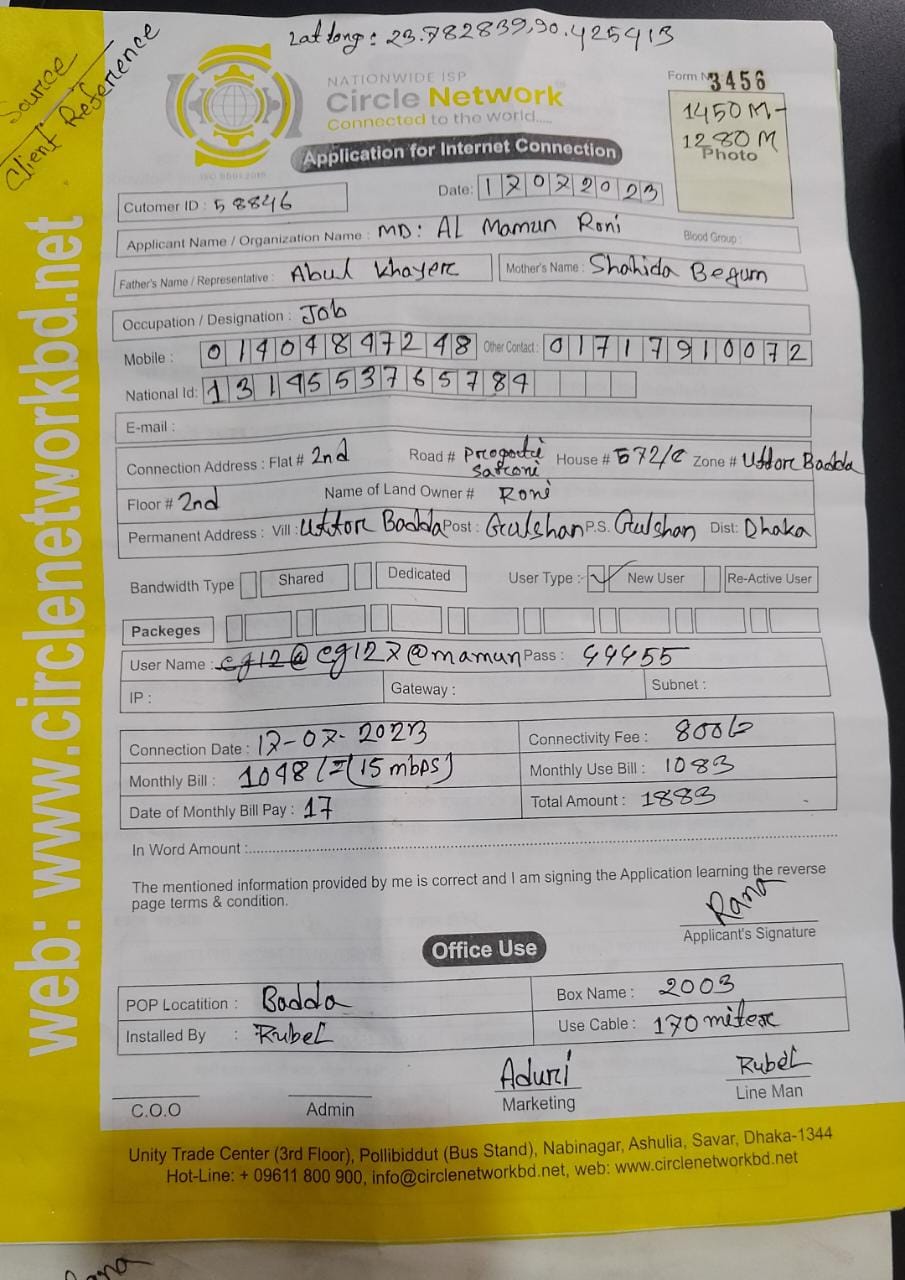 Source
Client Reference
Lat long : 23.782839,90.425413
NATIONWIDE ISP
Circle Network
Connected to the world.....
ISO 9001:2015
Form N 3456
1450 M-
1280 M
Photo
Application for Internet Connection
Cutomer ID : 58846
Date: 17072023
Applicant Name / Organization Name : MD: AL Mamun Roni Blood Group :
Father's Name / Representative : Abul Khayer Mother's Name : Shahida Begum
Occupation / Designation : Job
Mobile : 01404847248 Other Contact : 01717910072
National Id: 
E-mail :
Connection Address : Flat # 2nd Road # Progoti Sarconi House # 572/C Zone # Uttor Badda
Floor # 2nd Name of Land Owner # Roni
Permanent Address : Vill : Uttor Badda Post : Gulshan P.S. Gulshan Dist: Dhaka
Bandwidth Type Shared Dedicated User Type :- ✓ New User Re-Active User
Packeges
User Name : cg12@ cg127@mamun Pass : 44455
IP : Gateway : Subnet :
Connection Date : 17-07-2023 Connectivity Fee : 800/-
Monthly Bill : 1048/= (15 mbps) Monthly Use Bill : 1083
Date of Monthly Bill Pay : 17 Total Amount : 1883
In Word Amount :
The mentioned information provided by me is correct and I am signing the Application learning the reverse
page terms & condition.
Rana
Applicant's Signature
Office Use
POP Locatition : Badda Box Name : 2003
Installed By : Rubel Use Cable : 170 miter
Aduri Rubel
C.O.O Admin Marketing Line Man
Unity Trade Center (3rd Floor), Pollibiddut (Bus Stand), Nabinagar, Ashulia, Savar, Dhaka-1344
Hot-Line: + 09611 800 900, info@circlenetworkbd.net, web: www.circlenetworkbd.net
web: www.circlenetworkbd.net